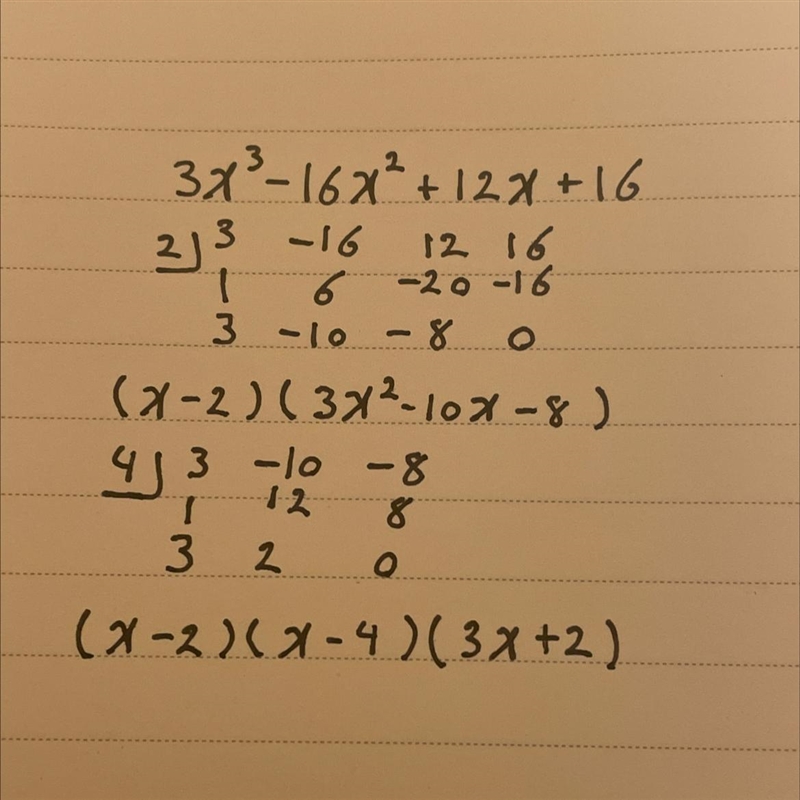 3x³-16x²+12x+16
2⌋ 3 -16 12 16
1 6 -20 -16
3 -10 -8 0
(x-2)(3x²-10x-8)
4⌋ 3 -10 -8
1 12 8
3 2 0
(x-2)(x-4)(3x+2)